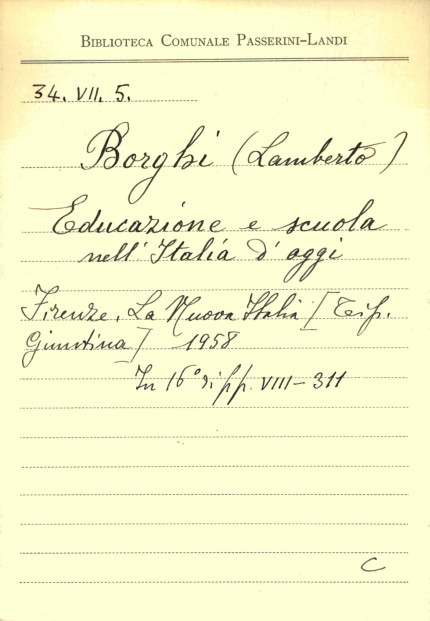 BIBLIOTECA COMUNALE PASSERINI-LANDI
34. VII. 5.
Borghi (Lamberto)
Educazione e scuola
nell'Italia d'oggi
Firenze, La Nuova Italia [Tip.
Giuntina] 1958
In 16° di pp. VIII-311
C